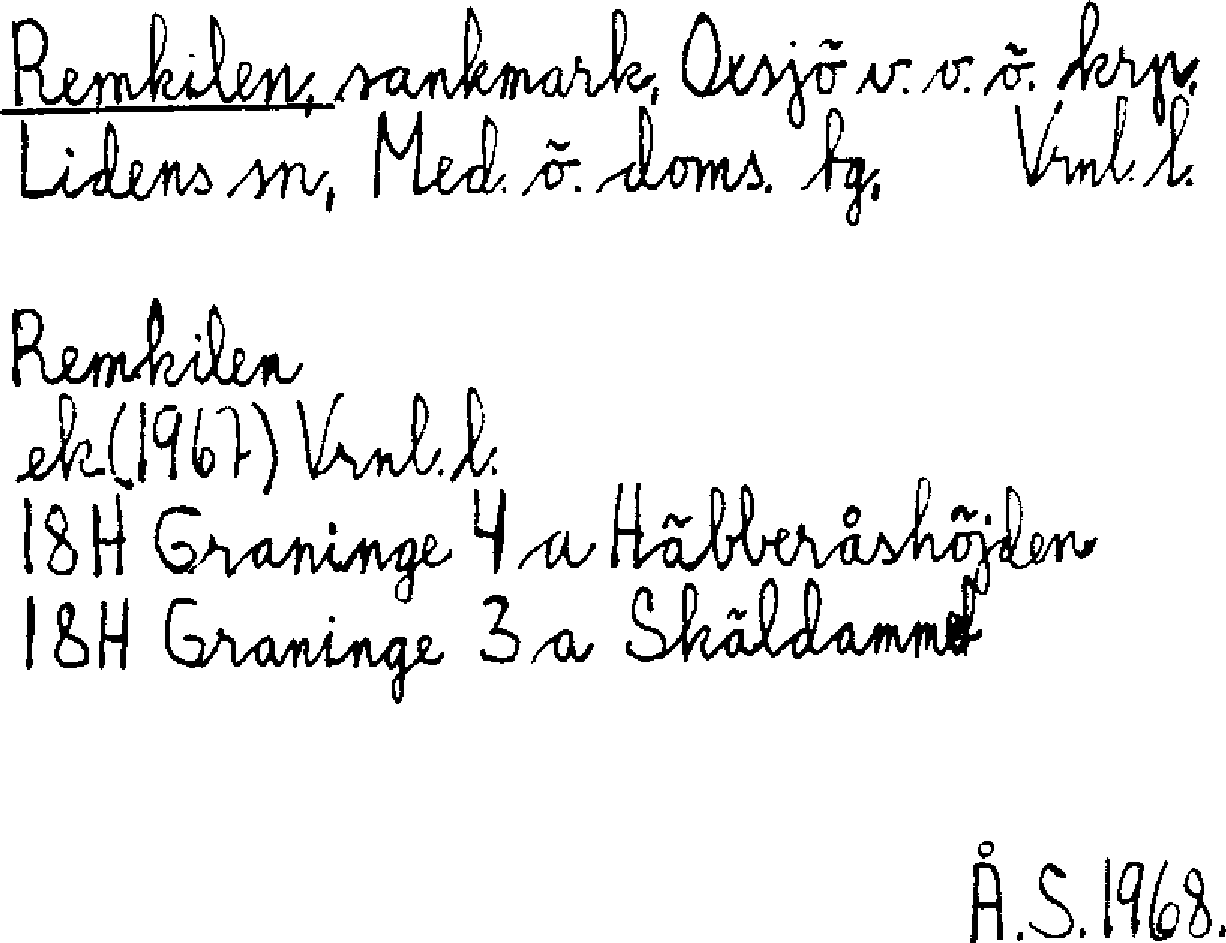 Remkilen, sankmark, Oxsjö v. o. ö. krp.
Lidens sn, Med. ö. doms. tg, Vrnl. l.
Remkilen
ek (1967) Vrnl. l.
18H Graninge 4 a Häbberåshöjden
18H Graninge 3 a
Å.S. 1968.